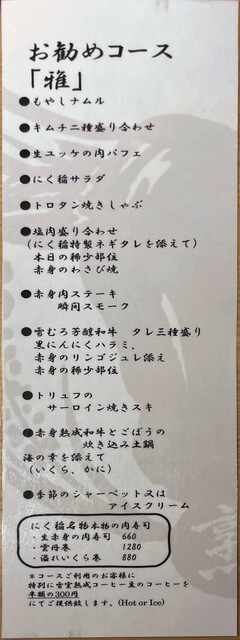 お勧めコース
「雅」
●もやしナムル
●キムチ二種盛り合わせ
●生ユッケの肉パフェ
●にく稲サラダ
●トロタン焼きしゃぶ
●塩肉盛り合わせ
(にく稲特製ネギタレを添えて)
本日の稀少部位
赤身のわさび焼
●赤身肉ステーキ
瞬間スモーク
●雪むろ芳醇和牛 タレ三種盛り
黒にんにくハラミ、
赤身のリンゴジュレ添え
赤身の稀少部位
●トリュフの
サーロイン焼きスキ
●赤身熟成和牛とごぼうの
炊き込み土鍋
海の幸を添えて
(いくら、かに)
●季節のシャーベット又は
アイスクリーム
にく稲名物本物の肉寿司
・生赤身の肉寿司 660
・雲丹巻 1280
・溢れいくら巻 880
※コースご利用のお客様に
特別に雪室熟成コーヒー豆のコーヒーを
半額の300円
にてご提供致します。(Hot or Ice)